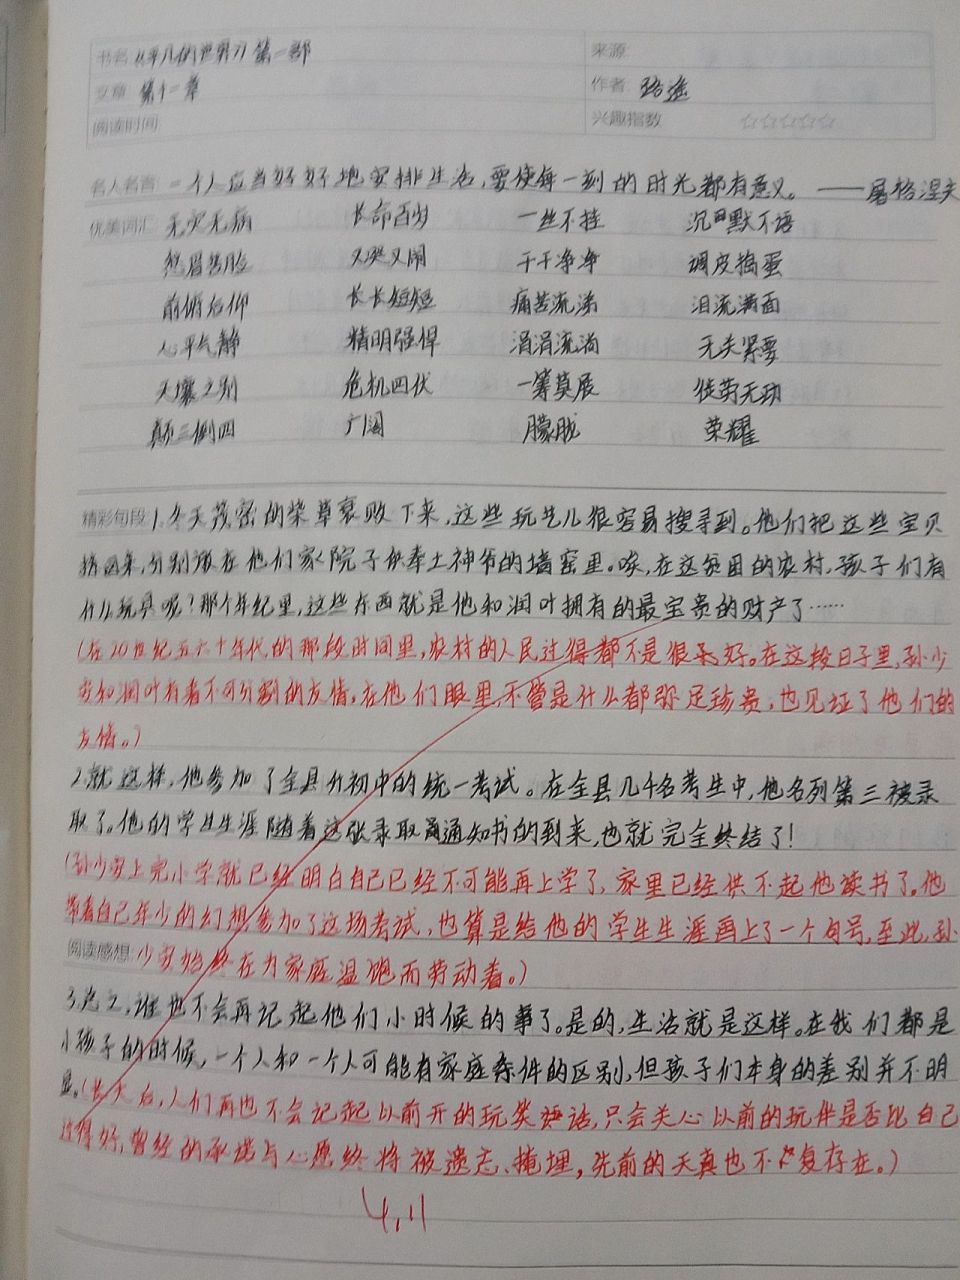 书名 《平凡的世界》第一部 来源
文章 第十一章 作者 路遥
阅读时间 兴趣指数 ☆☆☆☆☆
名人名言 一个人应当好好地安排生活,要使每一刻的时光都有意义。——屠格涅夫
优美词汇 无灾无病 长命百岁 一丝不挂 沉默不语
愁眉苦脸 又哭又闹 干干净净 调皮捣蛋
前俯后仰 长长短短 痛苦流涕 泪流满面
心平气静 精明强悍 涓涓流淌 无关紧要
天壤之别 危机四伏 一筹莫展 徒劳无功
颠三倒四 广阔 朦胧 荣耀
精彩句段 1.冬天茂密的柴草衰败下来,这些玩艺儿很容易搜寻到。他们把这些宝贝
拾回来,分别藏在他们家院子供奉土神爷的墙窑里。唉,在这贫困的农村,孩子们有
什么玩具呢?那个年纪里,这些东西就是他和润叶拥有的最宝贵的财产了……
(在20世纪五六十年代的那段时间里,农村的人民过得都不是很美好。在这段日子里,孙少
安和润叶有着不可分割的友情,在他们眼里,不管是什么都弥足珍贵,也见证了他们的
友情。)
2.就这样,他参加了全县升初中的统一考试。在全县几千名考生中,他名列第三被录
取了。他的学生生涯随着这张录取通知书的到来,也就完全终结了!
(孙少安上完小学就已经明白自己已经不可能再上学了,家里已经供不起他读书了。他
带着自己年少的幻想参加了这场考试,也算是给他的学生生涯画上了一个句号,至此,孙
阅读感想 少安始终在为家庭温饱而劳动着。)
3.总之,谁也不会再记起他们小时候的事了。是的,生活就是这样。在我们都是
小孩子的时候,一个人和一个人可能有家庭条件的区别,但孩子们本身的差别并不明
显。(长大后,人们再也不会记起以前开的玩笑话,只会关心以前的玩伴是否比自己
过得好,曾经的承诺与心愿终将被遗忘、掩埋,先前的天真也不复存在。)
4.11